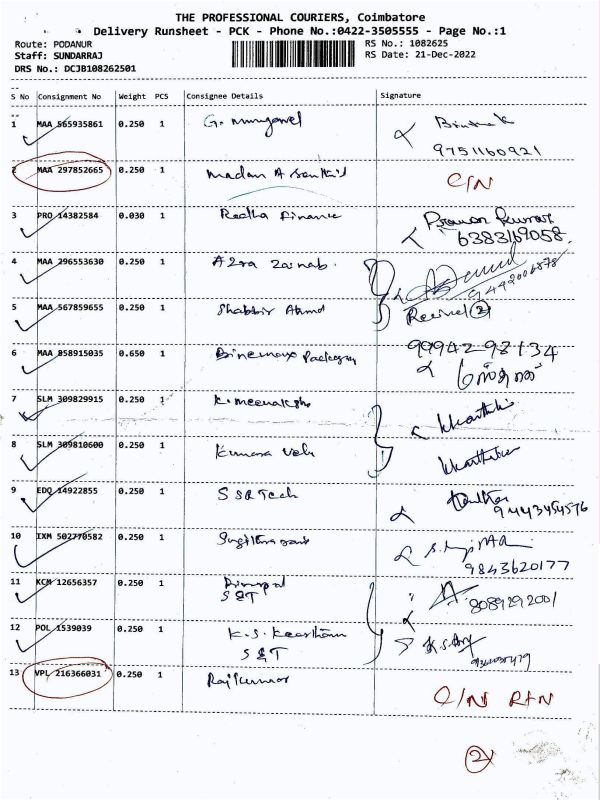 THE PROFESSIONAL COURIERS, Coimbatore
Delivery Runsheet - PCK - Phone No.:0422-3505555 - Page No.:1
Route: PODANUR
Staff: SUNDARRAJ
DRS No.: DCJB108262501
RS No.: 1082625
RS Date: 21-Dec-2022
S No Consignment No Weight PCS Consignee Details Signature
1 MAA 565935861 0.250 1
9751160921
2 MAA 297852665 0.250 1 Madan A C/N
3 PRO 14382584 0.030 1 Radha Finance Kumar
6383169058
4 MAA 296553630 0.250 1 Azra Zainab
5 MAA 567859655 0.250 1 Shabbir Ahmd 2
6 MAA 858915035 0.650 1 99942-98134
7 SLM 309829915 0.250 1 K. Meenakshi
8 SLM 309810600 0.250 1 Kumara Velu
9 EDQ 14922855 0.250 1 SSR Tech
9443454576
10 IXM 502770582 0.250 1
9843620177
11 KCM 12656357 0.250 1 8089292001
S&T
12 POL 1539039 0.250 1 K.S.
S&T
13 VPL 216366031 0.250 1 Rajkumar C/N RTN
2